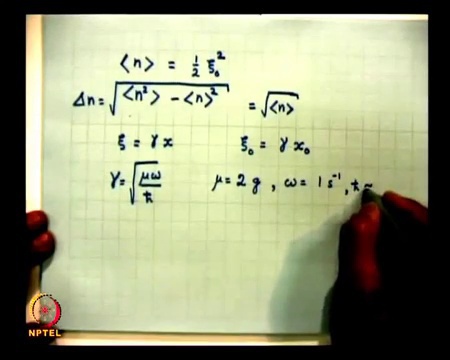 <n> = 1/2 ξ₀²
Δn = √(<n²> − <n>²) = √<n>
ξ = γx ξ₀ = γx₀
γ = √(μω/ħ) μ = 2 g, ω = 1 s⁻¹, ħ ≈
NPTEL